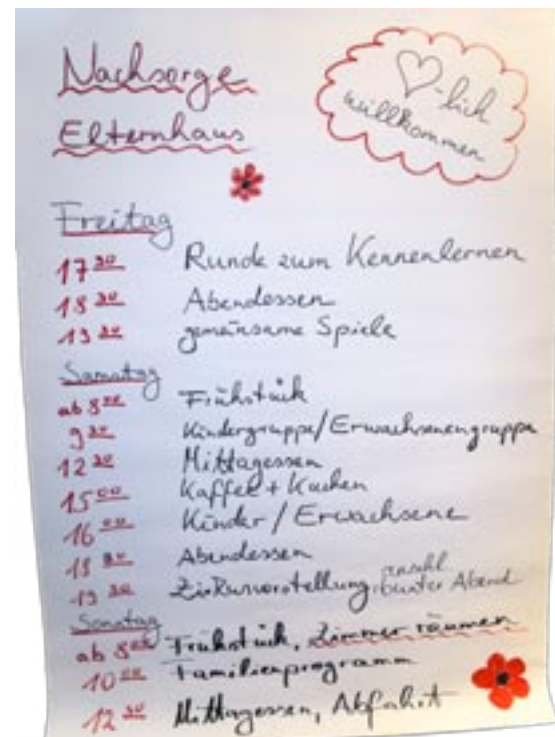 Nachsorge
Elternhaus
♡-lich
willkommen
Freitag
17³⁰ Runde zum Kennenlernen
18³⁰ Abendessen
19³⁰ gemeinsame Spiele
Samstag
ab 8⁰⁰ Frühstück
9³⁰ Kindergruppe/Erwachsenengruppe
12³⁰ Mittagessen
15⁰⁰ Kaffee + Kuchen
16⁰⁰ Kinder / Erwachsene
18³⁰ Abendessen
19³⁰ Zirkusvorstellung, anschl. bunter Abend
Sonntag
ab 8⁰⁰ Frühstück, Zimmer räumen
10⁰⁰ Familienprogramm
12³⁰ Mittagessen, Abfahrt